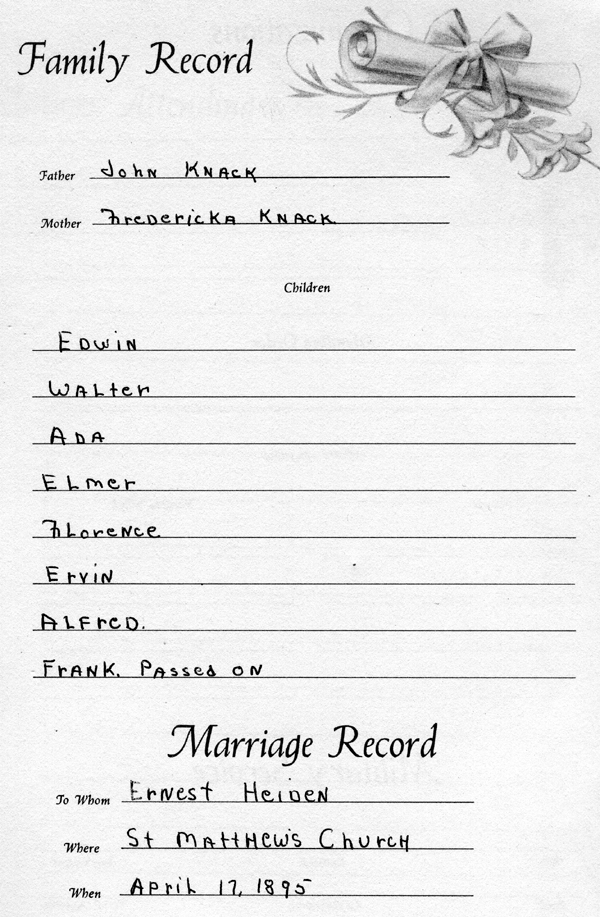 Family Record
Father John Knack
Mother Fredericka Knack
Children
Edwin
Walter
Ada
Elmer
Florence
Ervin
Alfred.
Frank. Passed on
Marriage Record
To Whom Ernest Heiden
Where St Matthew's Church
When April 17, 1895